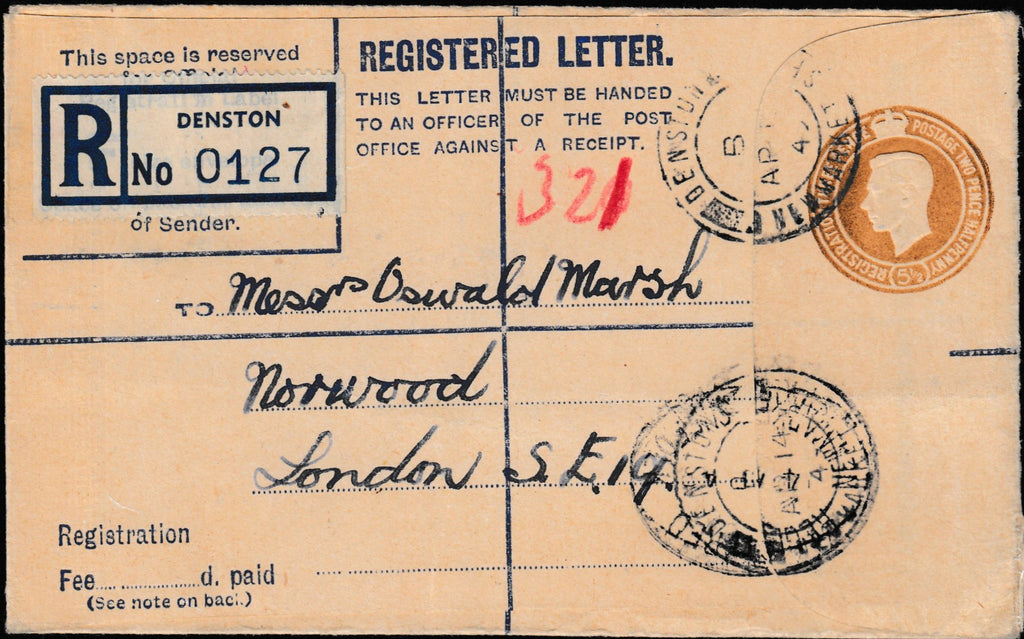 This space is reserved
REGISTERED LETTER.
THIS LETTER MUST BE HANDED
TO AN OFFICER OF THE POST
OFFICE AGAINST A RECEIPT.
R
DENSTON
No 0127
of Sender.
321
DENSTON
B
AP
4
NEWMARKET
POSTAGE TWO PENCE HALFPENNY
REGISTRATION
5½D
TO Messrs Oswald Marsh
Norwood
London S.E.19.
DENSTON
Registration
Fee............d. paid
(See note on back.)